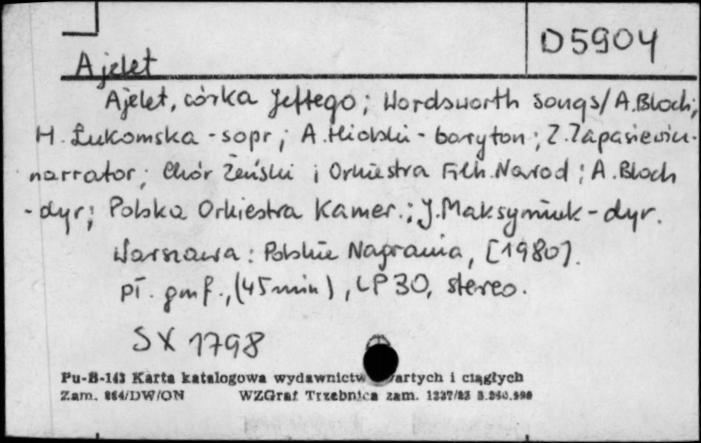 D5904
Ajelet
Ajelet, córka Jeftego; Wordsworth songs/A.Bloch;
H. Łukomska - sopr; A. Hiolski - baryton; Z. Zapasiewicz -
narrator; Chór Żeński i Orkiestra Filh. Narod; A. Bloch
- dyr; Polska Orkiestra Kamer.; J. Maksymiuk - dyr.
Warszawa: Polskie Nagrania, [1980].
pł. gmf., (45 min), LP 30, stereo.
SX 1798
Pu-B-143 Karta katalogowa wydawnictw wartych i ciągłych
Zam. 864/DW/ON WZGraf Trzebnica zam. 1237/83